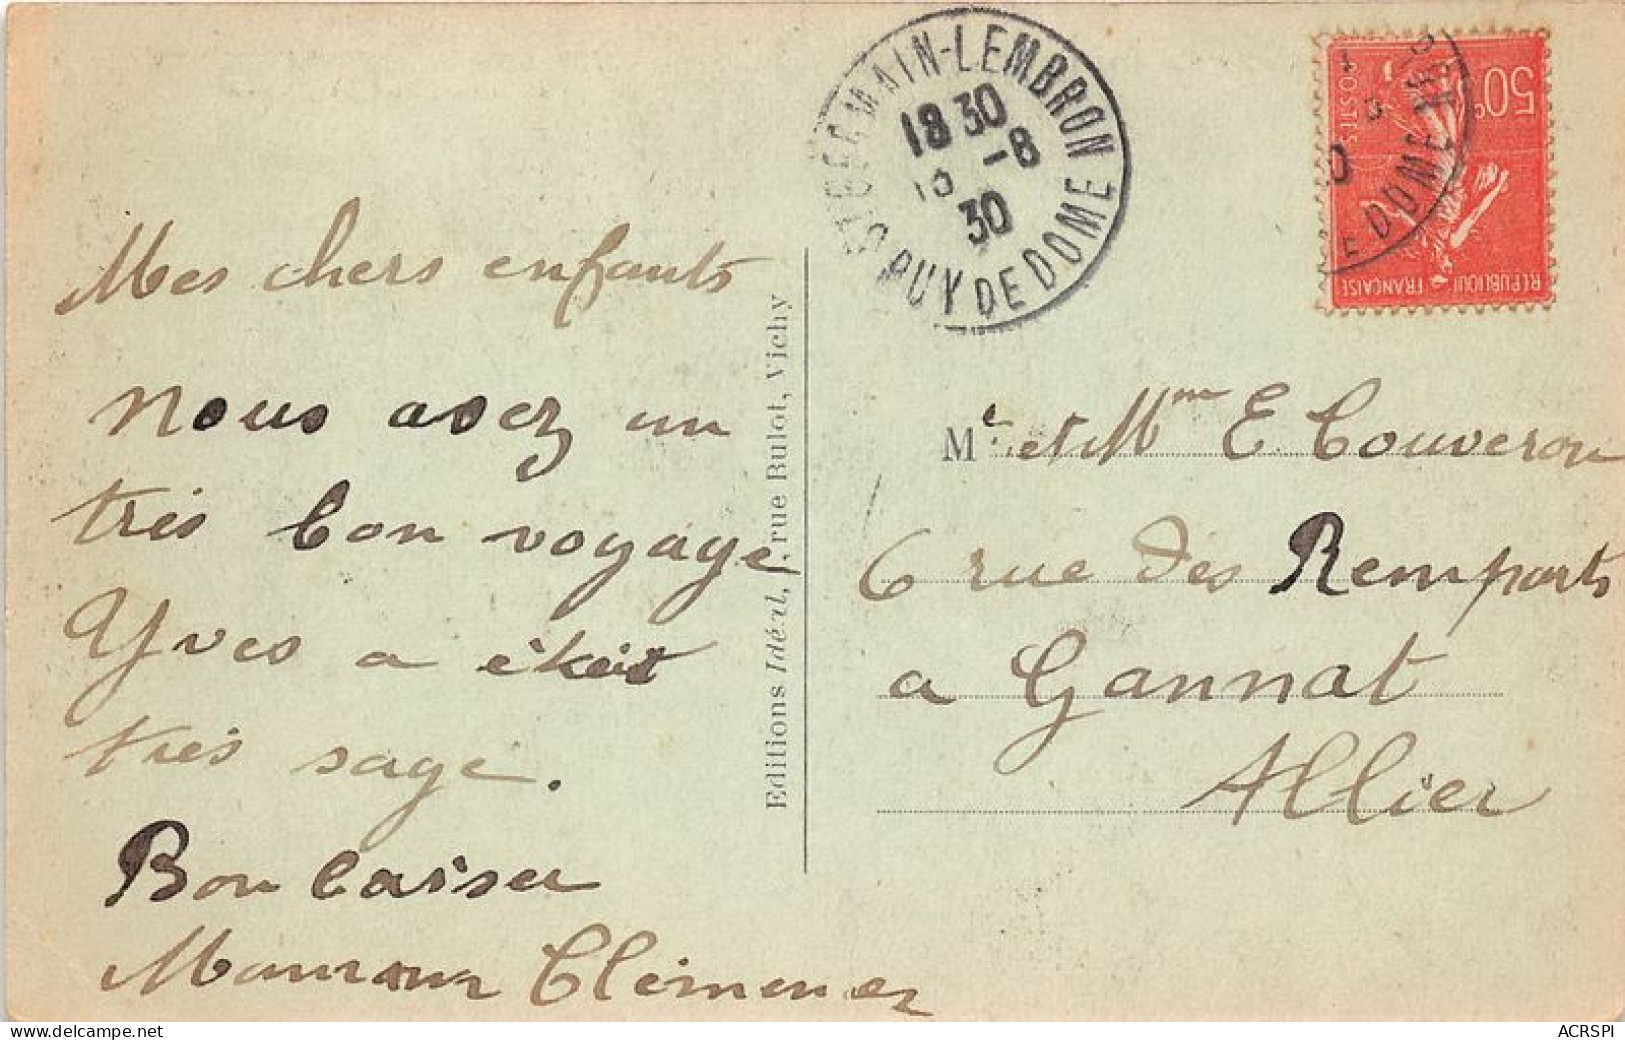 Mes chers enfants
nous avez un
très bon voyage
Yves a était
très sage.
Bon baiser
Maman Clémence
Editions Idéal, rue Bulot, Vichy
ST GERMAIN-LEMBRON
18 30
-8
30
PUY DE DOME
50c
POSTES
REPUBLIQUE FRANÇAISE
E DOME
Mr et Mme E Couveron
6 rue des Remparts
a Gannat
Allier
ACRSPI